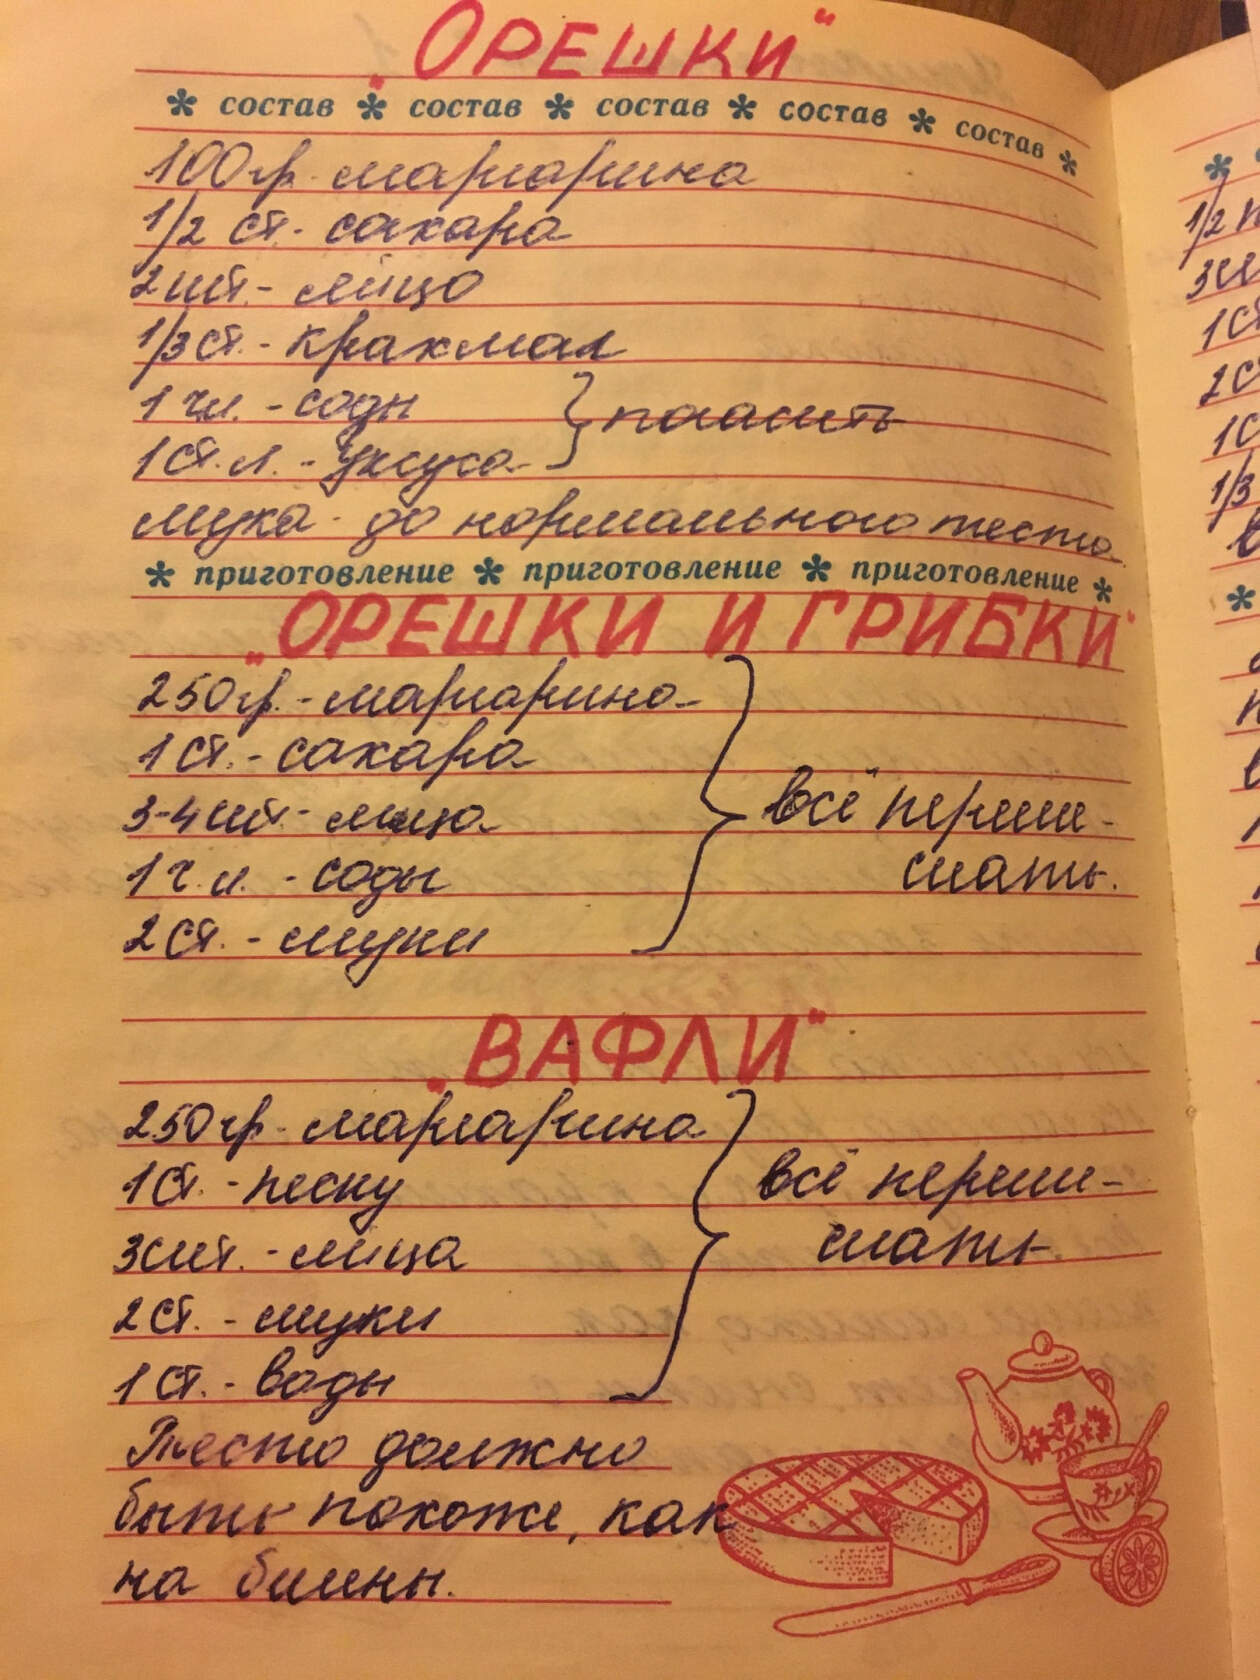 „ОРЕШКИ"
* состав * состав * состав * состав * состав *
100 гр. маргарина
1/2 ст. - сахара
2 шт. - яйцо
1/3 ст. - крахмал
1 ч.л. - соды } погасить
1 ст. л. - уксуса
мука - до нормального теста
* приготовление * приготовление * приготовление *
„ОРЕШКИ И ГРИБКИ"
250 гр. - маргарина
1 ст. - сахара
3-4 шт. - яйца
1 ч.л. - соды
2 ст. - муки
} всё переме-
шать.
„ВАФЛИ"
250 гр. - маргарина
1 ст. - песку
3 шт. - яйца
2 ст. - муки
1 ст. - воды
} всё переме-
шать.
Тесто должно
быть похоже, как
на блины.
1/2
3
1 ст
2 ст
1 с
1/3